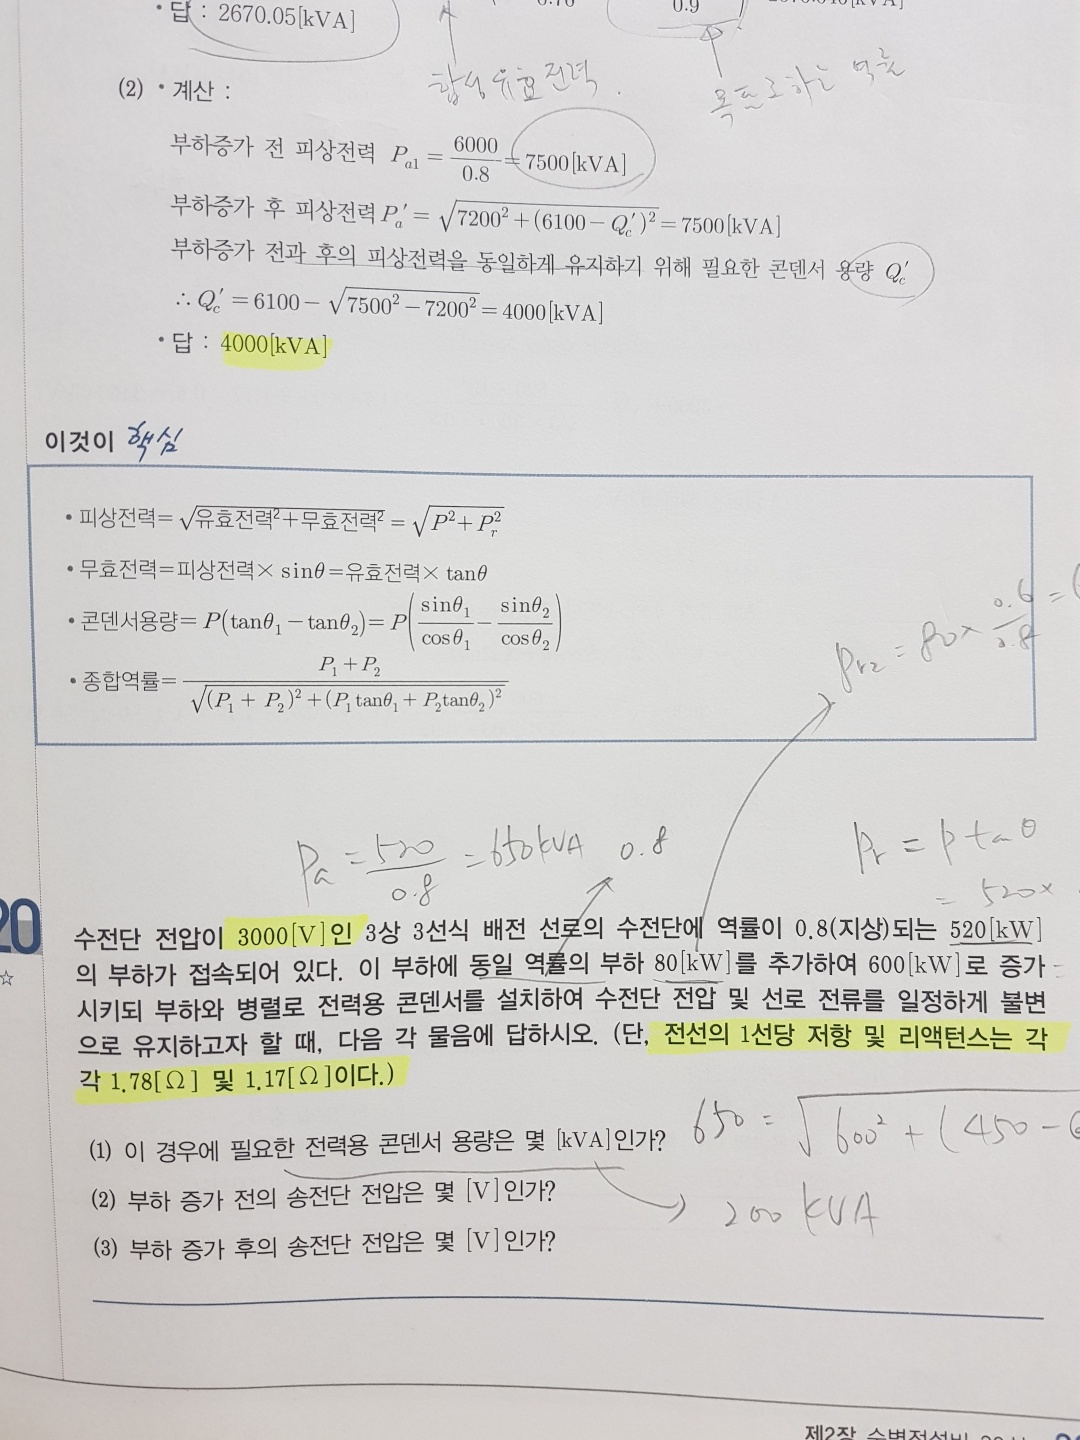 • 답 : 2670.05[kVA]
0.9
합성유효전력.
목표로하는 역률
(2) • 계산 :
부하증가 전 피상전력 P_a1 = 6000/0.8 = 7500[kVA]
부하증가 후 피상전력 P_a′ = √(7200² + (6100 − Q_c′)²) = 7500[kVA]
부하증가 전과 후의 피상전력을 동일하게 유지하기 위해 필요한 콘덴서 용량 Q_c′
∴ Q_c′ = 6100 − √(7500² − 7200²) = 4000[kVA]
• 답 : 4000[kVA]
이것이 핵심
• 피상전력 = √(유효전력² + 무효전력²) = √(P² + P_r²)
• 무효전력 = 피상전력 × sinθ = 유효전력 × tanθ
• 콘덴서용량 = P(tanθ₁ − tanθ₂) = P(sinθ₁/cosθ₁ − sinθ₂/cosθ₂)
• 종합역률 = (P₁ + P₂)/√((P₁ + P₂)² + (P₁tanθ₁ + P₂tanθ₂)²)
Pr₂ = 80 × 0.6/0.8 =
Pa = 520/0.8 = 650kVA 0.8
Pr = P tan θ
= 520×
20
☆
수전단 전압이 3000[V]인 3상 3선식 배전 선로의 수전단에 역률이 0.8(지상)되는 520[kW]
의 부하가 접속되어 있다. 이 부하에 동일 역률의 부하 80[kW]를 추가하여 600[kW]로 증가
시키되 부하와 병렬로 전력용 콘덴서를 설치하여 수전단 전압 및 선로 전류를 일정하게 불변
으로 유지하고자 할 때, 다음 각 물음에 답하시오. (단, 전선의 1선당 저항 및 리액턴스는 각
각 1.78[Ω] 및 1.17[Ω]이다.)
(1) 이 경우에 필요한 전력용 콘덴서 용량은 몇 [kVA]인가?
650 = √600² + (450 −
(2) 부하 증가 전의 송전단 전압은 몇 [V]인가?
200 kVA
(3) 부하 증가 후의 송전단 전압은 몇 [V]인가?
제2장